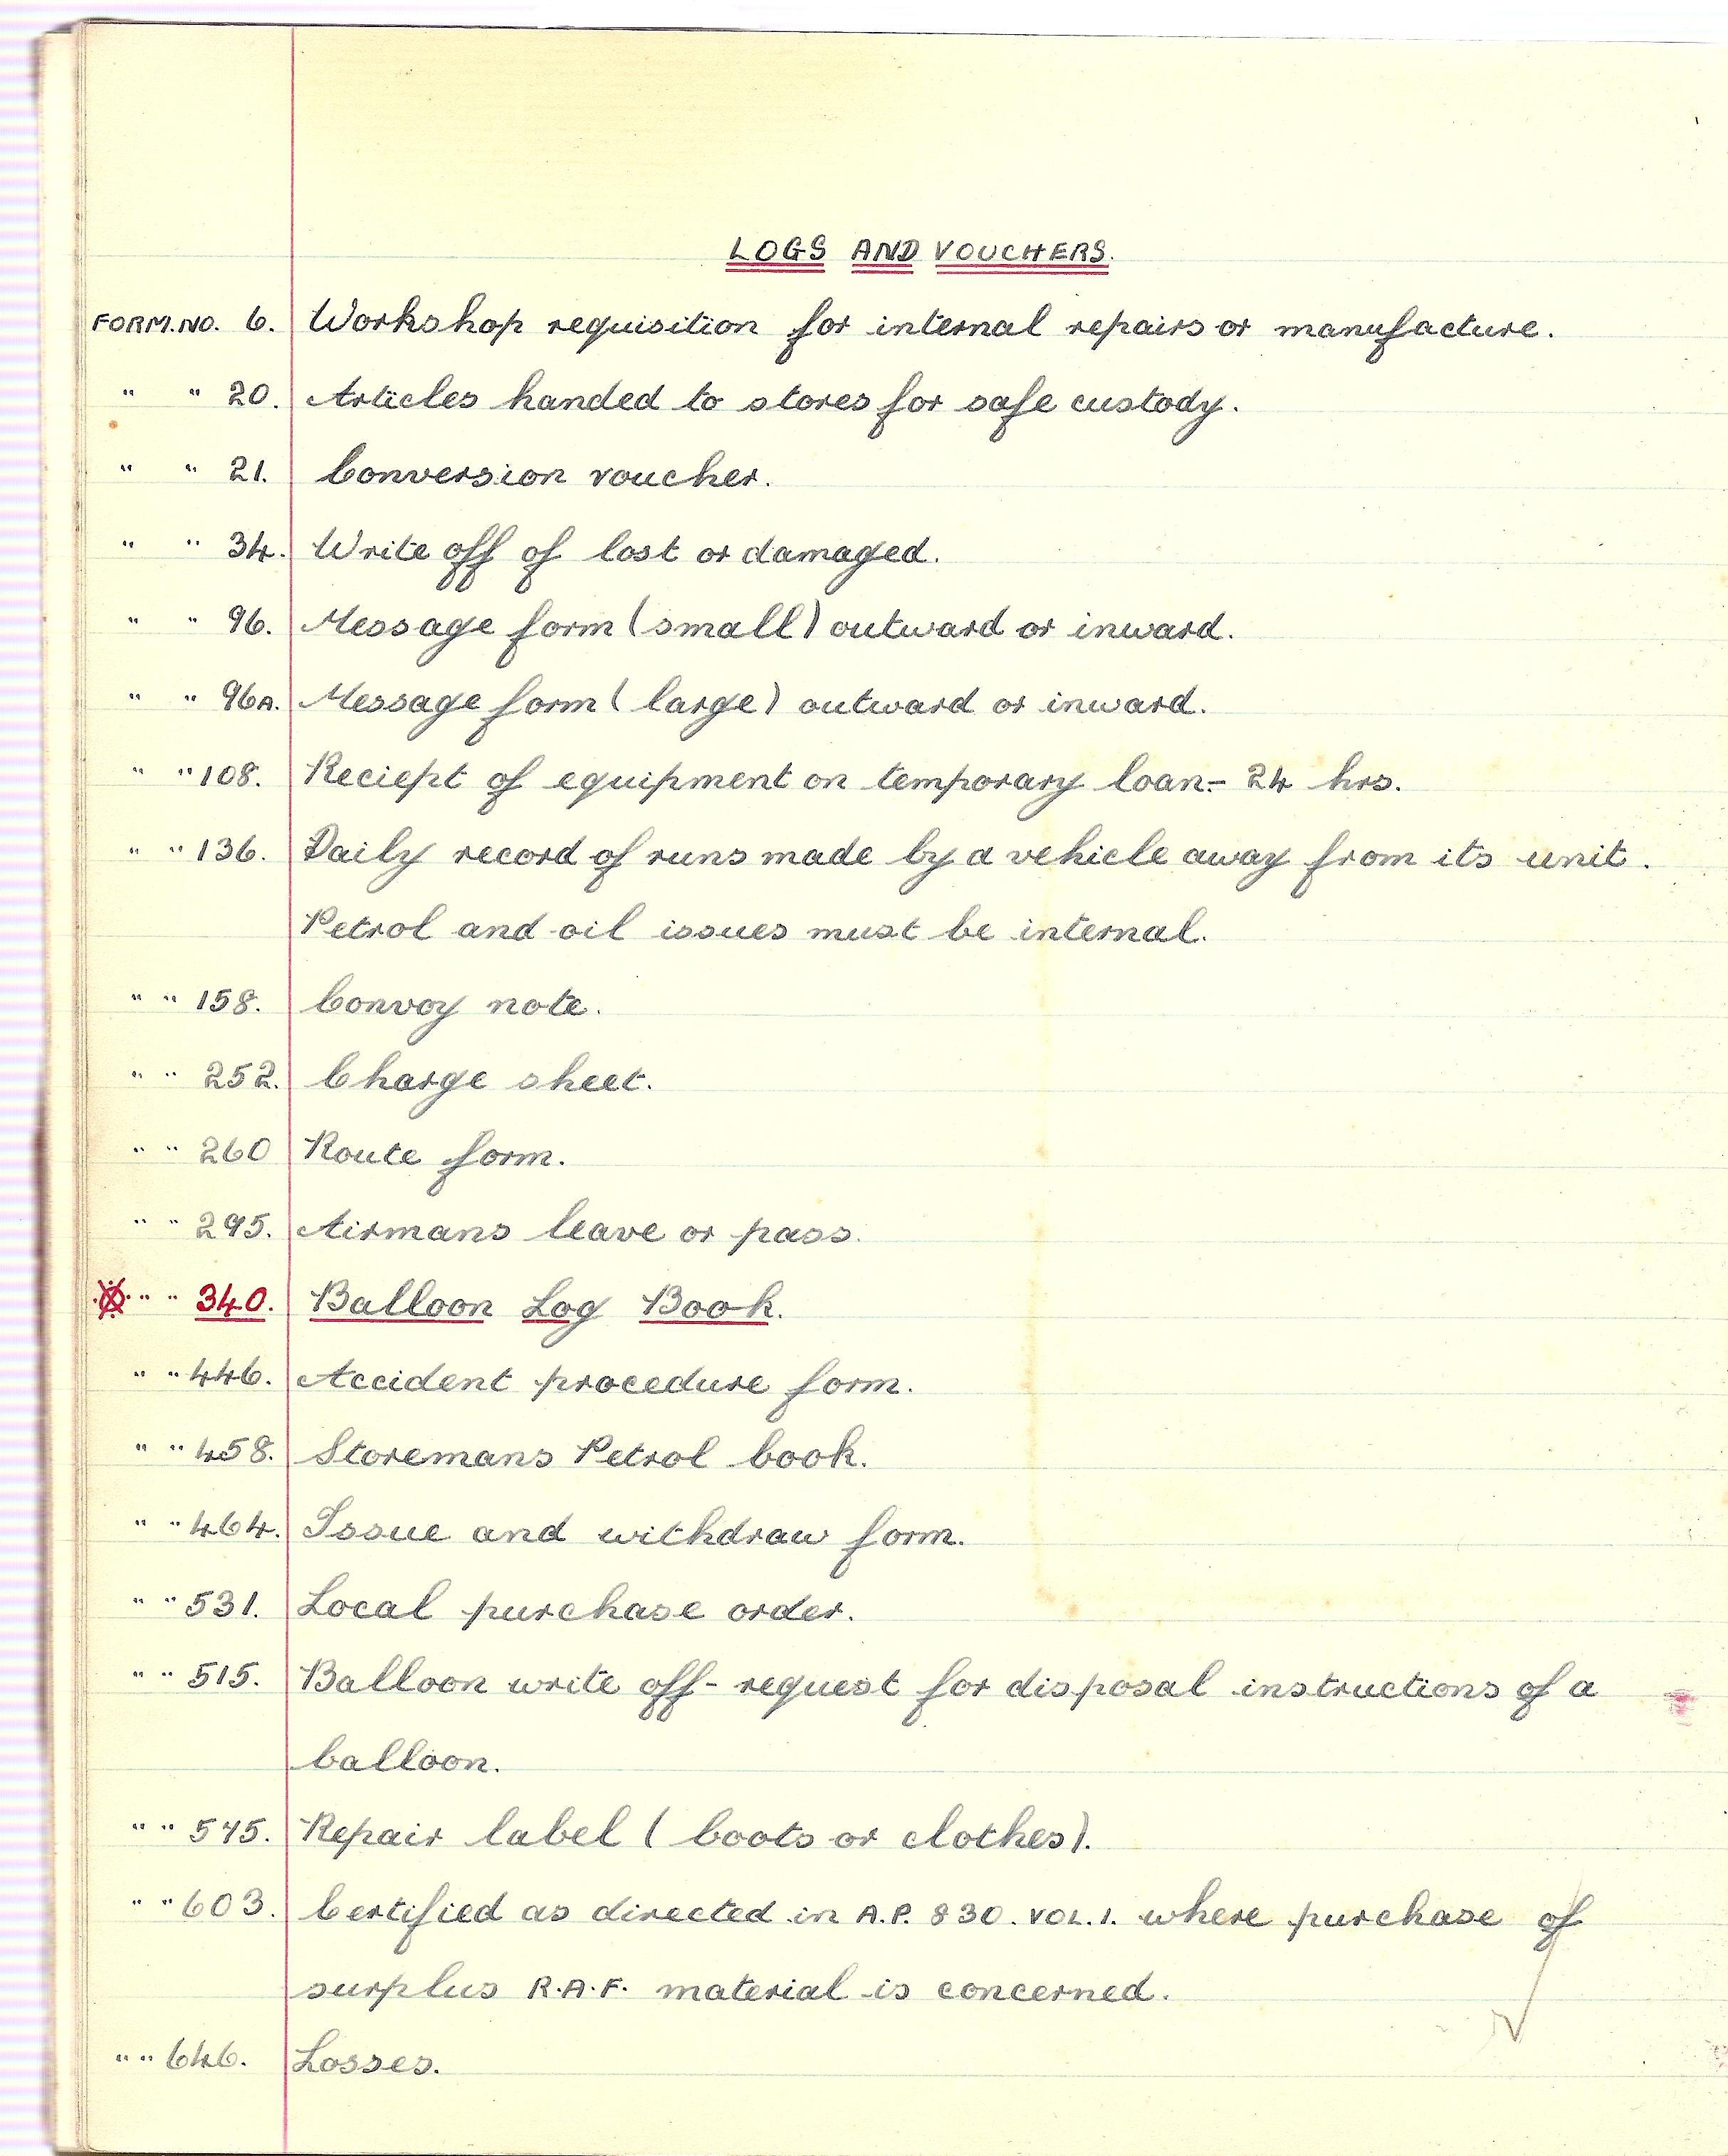 LOGS AND VOUCHERS.
FORM. NO. 6. Workshop requisition for internal repairs or manufacture.
" " 20. Articles handed to stores for safe custody.
" " 21. Conversion voucher.
" " 34. Write off of lost or damaged.
" " 96. Message form (small) outward or inward.
" " 96A. Message form (large) outward or inward.
" " 108. Reciept of equipment on temporary loan - 24 hrs.
" " 136. Daily record of runs made by a vehicle away from its unit.
Petrol and oil issues must be internal.
" " 158. Convoy note.
" " 252. Charge sheet.
" " 260 Route form.
" " 295. Airmans leave or pass.
" " 340. Balloon Log Book.
" " 446. Accident procedure form.
" " 458. Storemans Petrol book.
" " 464. Issue and withdraw form.
" " 531. Local purchase order.
" " 515. Balloon write off - request for disposal instructions of a
balloon.
" " 575. Repair label (boots or clothes).
" " 603. Certified as directed in A.P. 830. VOL. 1. where purchase of
surplus R.A.F. material is concerned.
" " 646. Losses.